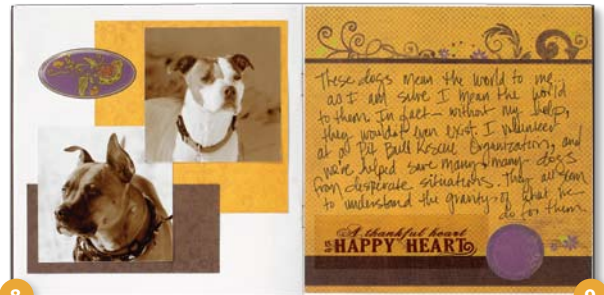 These dogs mean the world to me
as I am sure I mean the world
to them. In fact - without my help,
they wouldn't even exist. I volunteer
at a Pit Bull Rescue Organization, and
we've helped save many-many dogs
from desperate situations. They all seem
to understand the gravity of what we
do for them.
A thankful heart
is a HAPPY HEART
8
9